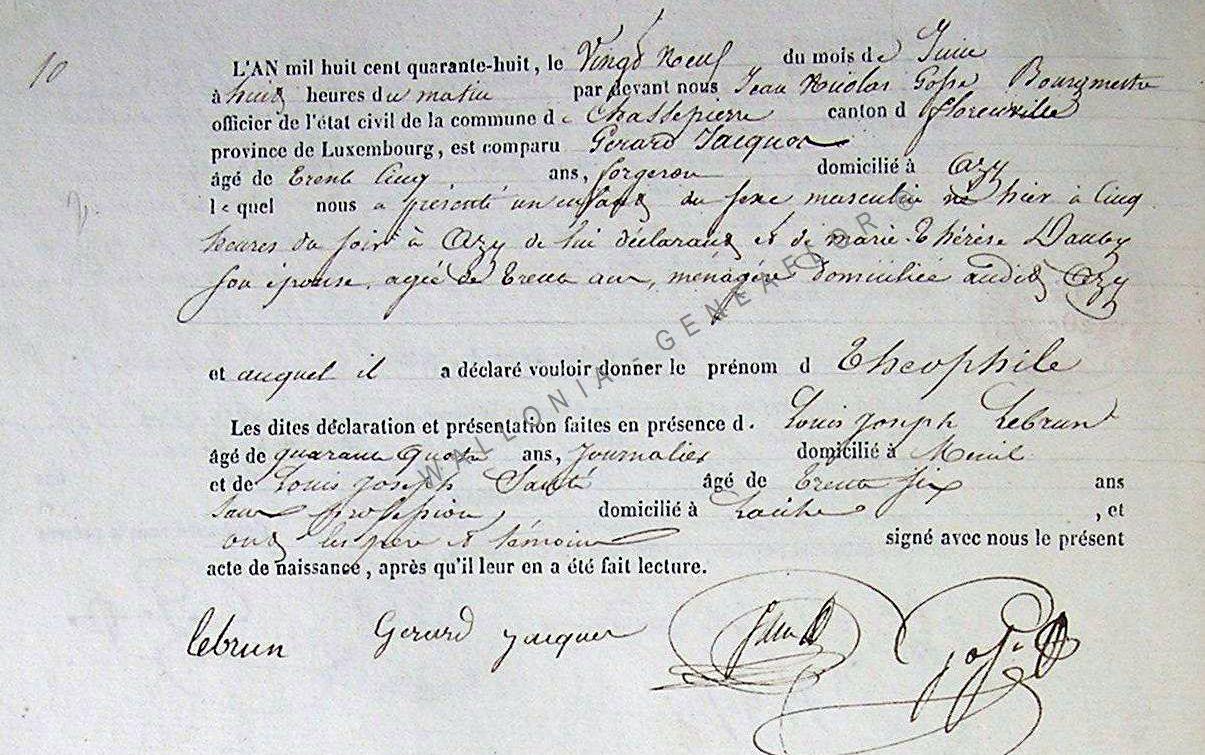 10
L'AN mil huit cent quarante-huit, le Vingt Neuf du mois de Juin
à huit heures du matin par devant nous Jean Nicolas Gosse Bourgmestre
officier de l'état civil de la commune de Chassepierre canton d florenville
province de Luxembourg, est comparu Gérard Jacques
âgé de trente cinq ans, forgeron domicilié à Azy
lequel nous a présenté un enfant du sexe masculin né hier à cinq
heures du soir à Azy de lui déclarant et de marie Thérèse Dauby
son épouse, agée de trente ans, ménagère domiciliée audit Azy
et auquel il a déclaré vouloir donner le prénom d Theophile
Les dites déclaration et présentation faites en présence d. Louis Joseph Lebrun
âgé de quarante quatre ans, Journalier domicilié à Menil
et de Louis Joseph âgé de trente six ans
sans profession, domicilié à Laiche, et
ont les père et témoins signé avec nous le présent
acte de naissance, après qu'il leur en a été fait lecture.
lebrun Gérard Jacques
WALLONIA - GENEAFLOR ©